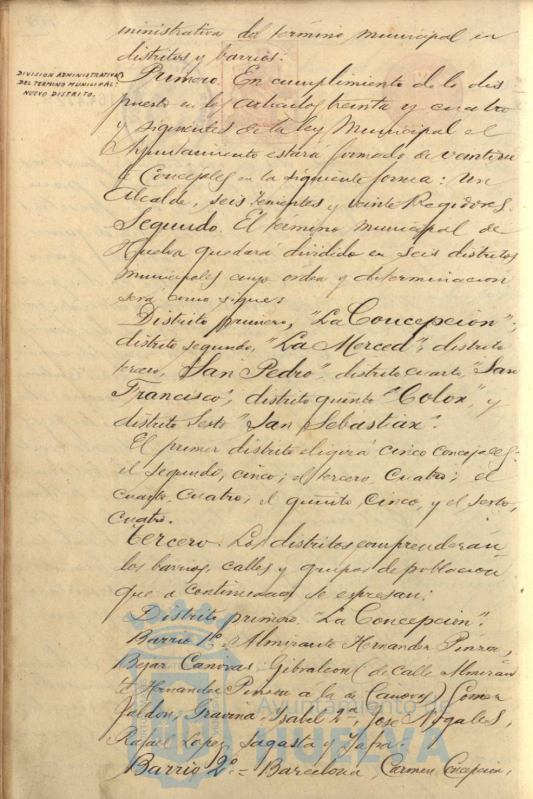 ministrativa del término municipal en
distritos y barrios.
DIVISION ADMINISTRATIVA
DEL TERMINO MUNICIPAL:
NUEVO DISTRITO.
Primero. En cumplimiento de lo dis
puesto en los artículos treinta y cuatro
y siguientes de la ley Municipal el
Ayuntamiento estará formado de veintisie
te Concejales en la siguiente forma: Un
Alcalde, seis Tenientes y veinte Regidores.
Segundo. El término municipal de
Huelva quedará dividido en seis distritos
municipales cuyo orden y determinación
será como sigue:
Distrito primero, "La Concepcion",
distrito segundo, "La Merced", distrito
tercero, "San Pedro", distrito cuarto, "San
Francisco", distrito quinto "Colon", y
distrito sexto "San Sebastian".
El primer distrito eligirá cinco concejales:
el segundo, cinco; el tercero, cuatro; el
cuarto, cuatro; el quinto, cinco, y el sexto,
cuatro.
Tercero. Los distritos comprenderán
los barrios, calles y grupos de poblacion
que a continuacion se espresan:
Distrito primero. "La Concepcion".
Barrio 1º. Almirante Hernandez Pinzon,
Bejar, Canovas, Gibraleon (de calle Almiran
te Hernandez Pinzon a la de Canovas) Gomez
Jaldon, Gravina, Isabel 2ª, José Nogales,
Rafael Lopez, Sagasta y Zafra.
Barrio 2º = Barcelona, Carmen, Concepcion,
Ayuntamiento de
HUELVA